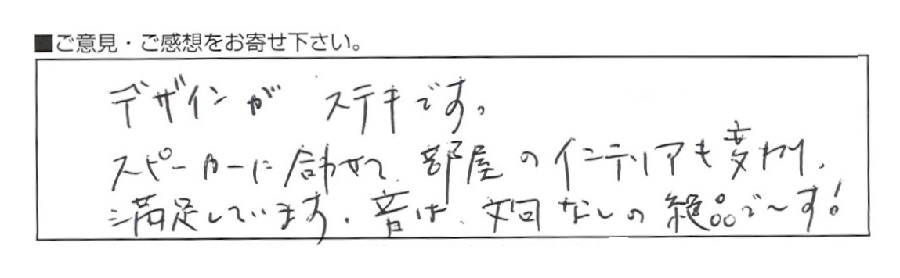 ■ご意見・ご感想をお寄せ下さい。
デザインが ステキです。
スピーカーに合わせて、部屋のインテリアも変わり、
満足しています。音は、文句なしの絶品で〜す!